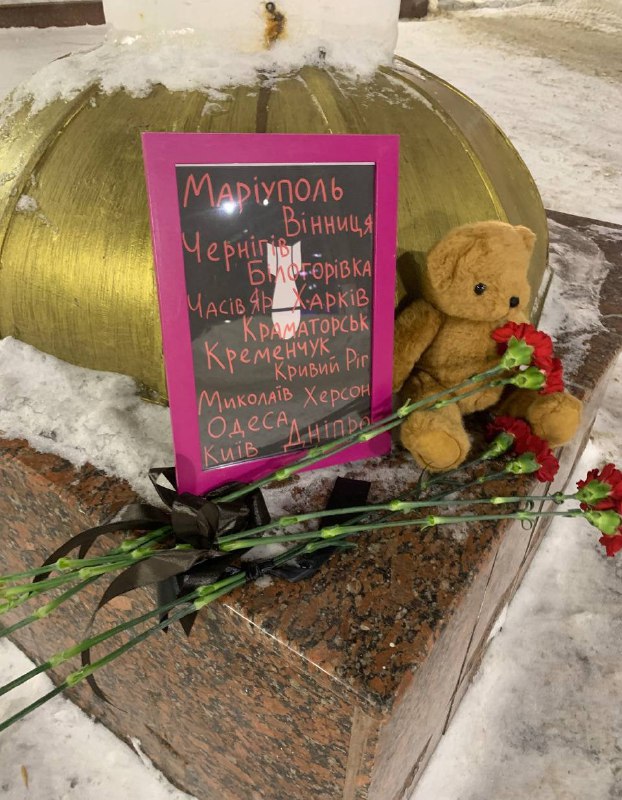 Маріуполь
Вінниця
Чернігів
Білогорівка
Часів Яр Харків
Краматорськ
Кременчук
Кривий Ріг
Миколаїв Херсон
Одеса
Київ Дніпро